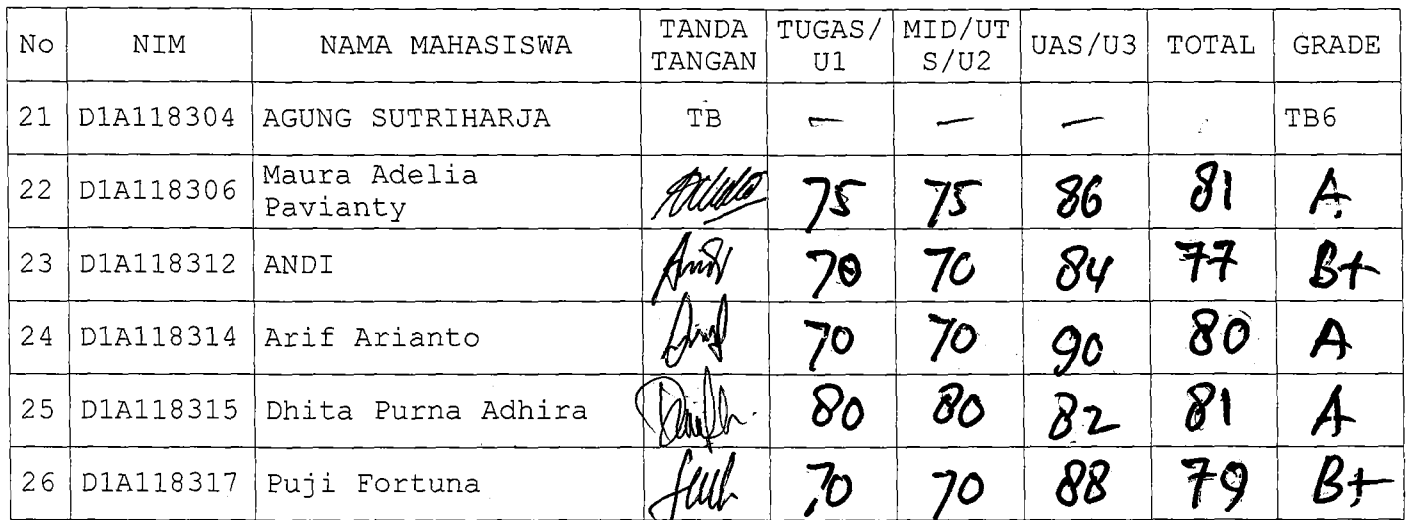 No NIM NAMA MAHASISWA TANDA TANGAN TUGAS/ U1 MID/UT S/U2 UAS/U3 TOTAL GRADE
21 D1A118304 AGUNG SUTRIHARJA TB — — — TB6
22 D1A118306 Maura Adelia Pavianty 75 75 86 81 A
23 D1A118312 ANDI Andi 70 70 84 77 B+
24 D1A118314 Arif Arianto 70 70 90 80 A
25 D1A118315 Dhita Purna Adhira 80 80 82 81 A
26 D1A118317 Puji Fortuna 70 70 88 79 B+